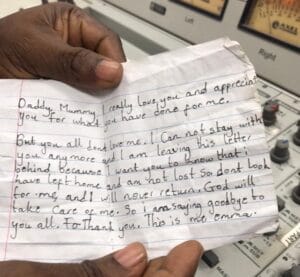 Left
Right
Daddy, Mummy, I really love you and appreciate
you for what you have done for me.
But you all dont love me. I Can not stay with
you anymore and I am leaving this letter
behind because I want you to know that i
have left home and am not lost So dont look
for me, and I will never return. God will
take care of me. So I am saying goodbye to
you all. Thank you. This is me emma.